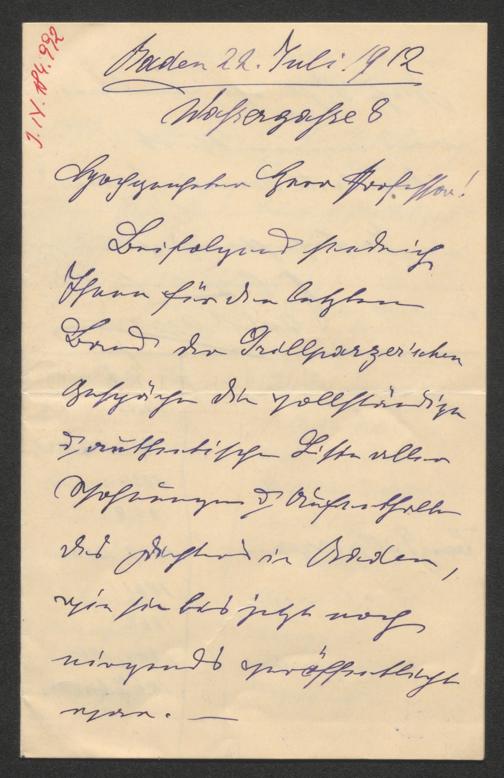 J.IV.184.992
Baden 22. Juli 1912
Wassergasse 8
Hochgeehrter Herr Professor!
Beifolgend sende ich
Ihnen für den letzten
Band der Grillparzer'schen
Gespräche die vollständige
& authentische Liste aller
Wohnungen & Aufenthalte
des Dichters in Baden,
wie sie bis jetzt noch
nirgends veröffentlicht
war. —